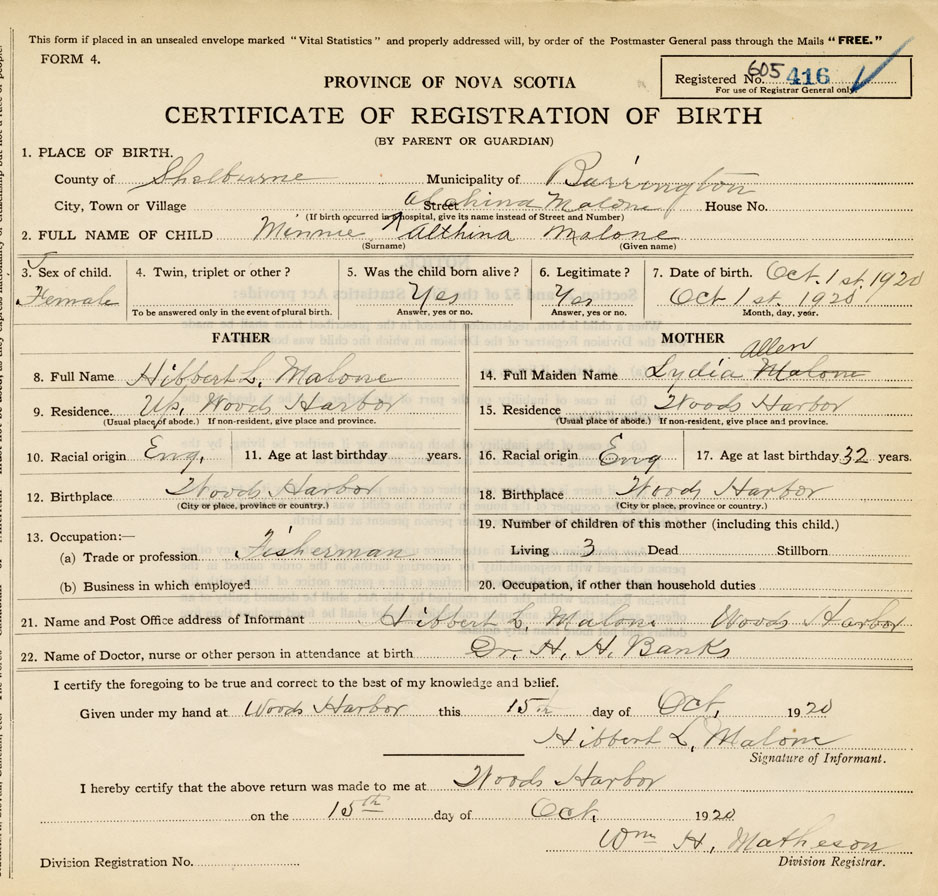 This form if placed in an unsealed envelope marked "Vital Statistics" and properly addressed will, by order of the Postmaster General pass through the Mails "FREE."
FORM 4.
Registered No. 605 416
For use of Registrar General only
PROVINCE OF NOVA SCOTIA
CERTIFICATE OF REGISTRATION OF BIRTH
(BY PARENT OR GUARDIAN)
1. PLACE OF BIRTH.
County of Shelburne Municipality of Barrington
City, Town or Village Street Malone House No.
(If birth occurred in hospital, give its name instead of Street and Number)
2. FULL NAME OF CHILD Minnie Althina Malone
(Surname) (Given name)
3. Sex of child. 4. Twin, triplet or other? 5. Was the child born alive? 6. Legitimate? 7. Date of birth. Oct. 1st, 1920
Female Yes Yes Oct 1st. 1920
To be answered only in the event of plural birth. Answer, yes or no. Answer, yes or no. Month, day, year.
FATHER
8. Full Name Hibbert L. Malone
9. Residence. Up. Woods Harbor
(Usual place of abode.) If non-resident, give place and province.
10. Racial origin Eng. 11. Age at last birthday years.
12. Birthplace Woods Harbor
(City or place, province or country.)
13. Occupation:—
(a) Trade or profession Fisherman
(b) Business in which employed
MOTHER
Allen
14. Full Maiden Name Lydia Malone
15. Residence Woods Harbor
(Usual place of abode.) If non-resident, give place and province.
16. Racial origin Eng 17. Age at last birthday 32 years.
18. Birthplace Woods Harbor
(City or place, province or country.)
19. Number of children of this mother (including this child.)
Living 3 Dead Stillborn
20. Occupation, if other than household duties
21. Name and Post Office address of Informant Hibbert L. Malone Woods Harbor
22. Name of Doctor, nurse or other person in attendance at birth Dr. H. H. Banks
I certify the foregoing to be true and correct to the best of my knowledge and belief.
Given under my hand at Woods Harbor this 15th day of Oct. 1920
Hibbert L. Malone
Signature of Informant.
I hereby certify that the above return was made to me at Woods Harbor
on the 15th day of Oct. 1920
Wm H. Matheson
Division Registration No. Division Registrar.